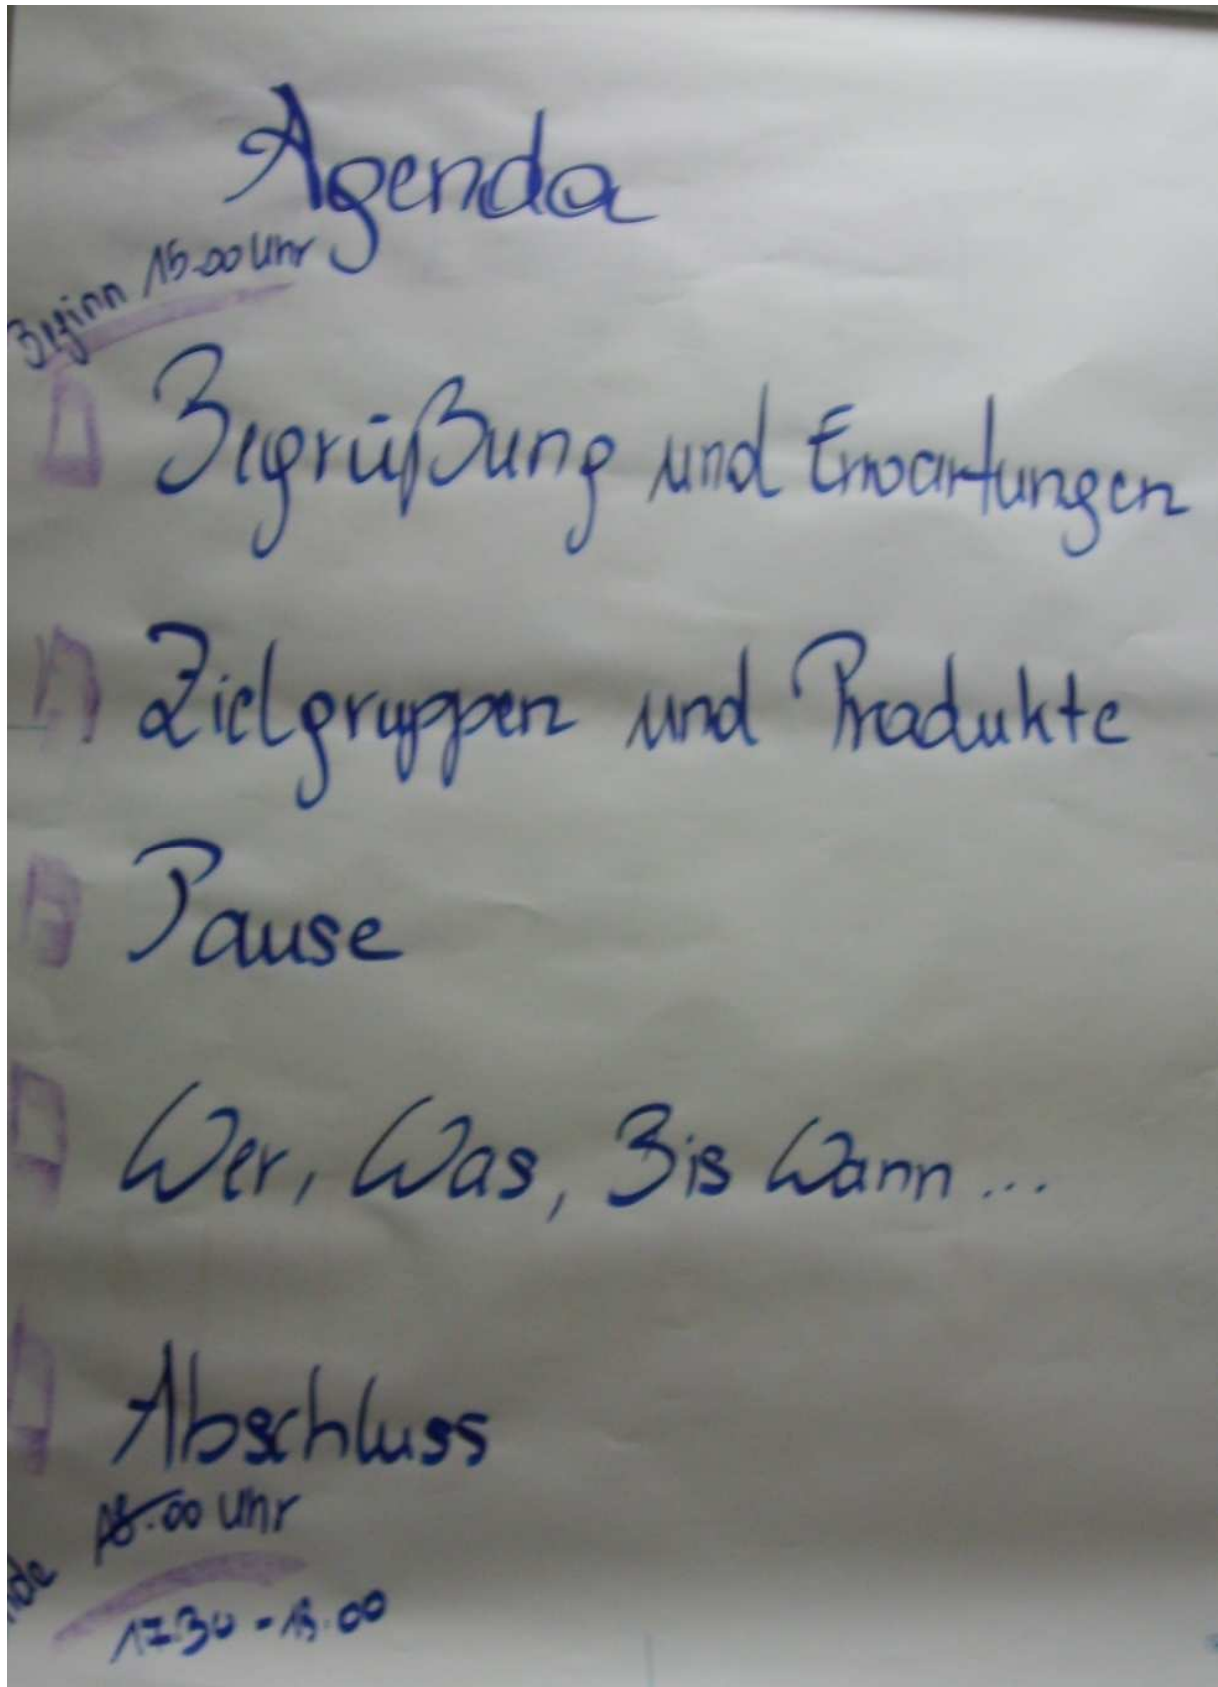 Agenda
Beginn 15.00 Uhr
Begrüßung und Erwartungen
Zielgruppen und Produkte
Pause
Wer, Was, Bis Wann...
Abschluss
18.00 Uhr
nde
17.30 - 18.00